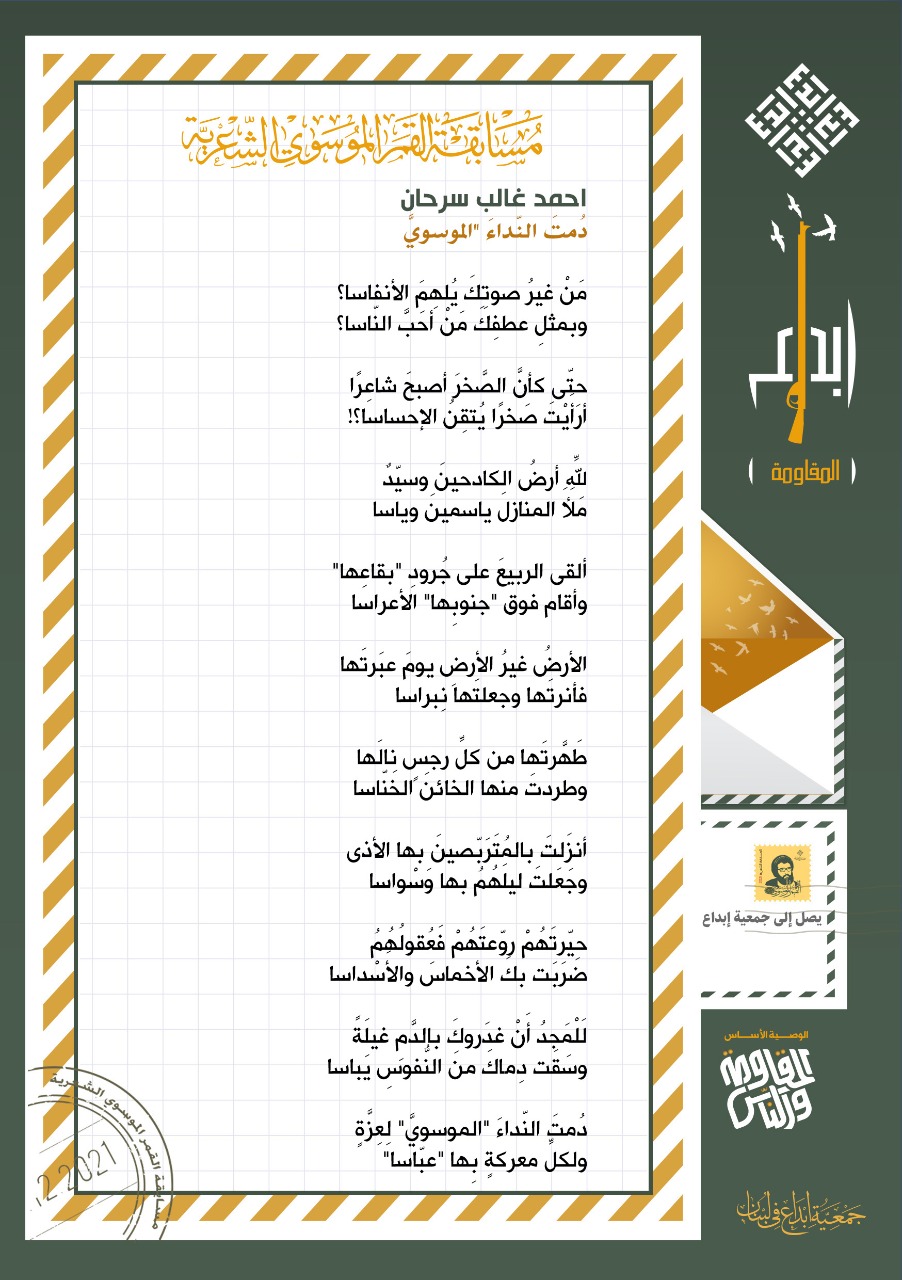 مُسَابَقَةُ القَمَرِ المُوسَوِيِّ الشِّعْرِيَّة
احمد غالب سرحان
دُمتَ النّداءَ "الموسويَّ
مَنْ غيرُ صوتِكَ يُلهِمَ الأنفاسا؟
وبمثلِ عطفِكَ مَنْ أحَبَّ النّاسا؟
حتّى كأنَّ الصَّخرَ أصبحَ شاعِرًا
أرَأيْتَ صَخرًا يُتقِنُ الإحساسا؟!
للّٰهِ أرضُ الكادحينَ وسيّدٌ
مَلأ المنازل ياسمين وياسا
ألقى الربيعَ على جُرودِ "بقاعِها"
وأقام فوق "جنوبِها" الأعراسا
الأرضُ غيرُ الأرضِ يومَ عبَرتَها
فأنرتها وجعلتها نِبراسا
طَهَّرتَها من كلِّ رجسٍ نِالَها
وطردتَ منها الخائنَ الخنّاسا
أنزَلتَ بالمُتَرَبّصينَ بها الأذى
وجَعَلتَ ليلَهُمُ بها وَسْواسا
حيّرتَهُمْ روّعتَهُمْ فَعُقولُهُمُ
ضرَبَت بك الأخماسَ والأسْداسا
لَلْمَجدُ أنْ غدَروكَ بالدَّم غيلَةً
وسَقَت دِماكَ من النُّفوسَ يَباسا
دُمتَ النّداءَ "الموسويَّ" لِعِزَّةٍ
ولكلِّ معركةٍ بِها "عبّاسا"
إبداع
المقاومة
يصل إلى جمعية إبداع
الوصـــية الأســـاس
المقاومة
والناس
جَمْعِيَّة إبْدَاع في لبنان
مسابقة القمر الموسوي الشعرية
2 2021